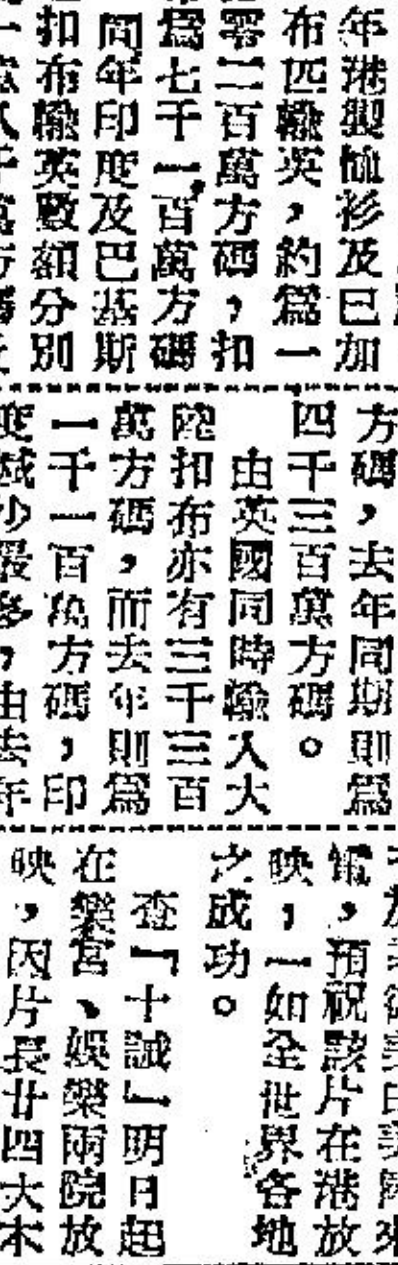 年港製恤衫及已加
布匹輸英，約爲一
零二百萬方碼，扣
爲七千一百萬方碼
同年印度及巴基斯
扣布輸英數額分別
方碼，去年同期則爲
四千三百萬方碼。
由英國同時輸入大
陸扣布亦有三千三百
萬方碼，而去年則爲
一千一百萬方碼，印
度減少最多，由去年
電，預祝該片在港放
映，一如全世界各地
之成功。
查『十誡』明日起
在樂宮、娛樂兩院放
映，因片長廿四大本